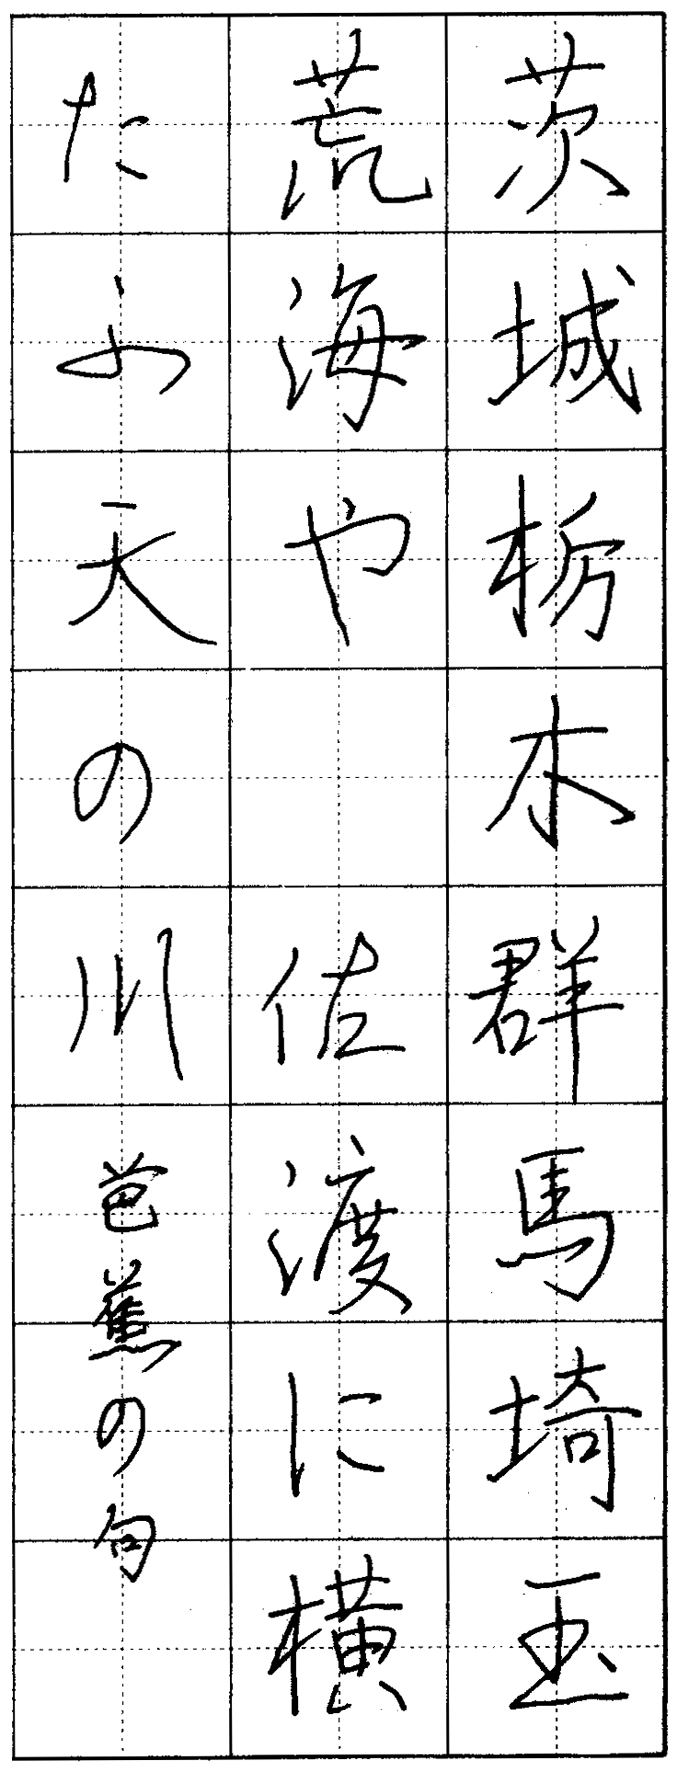 茨城栃木群馬埼玉
荒海や 佐渡に横
たふ天の川 芭蕉の句